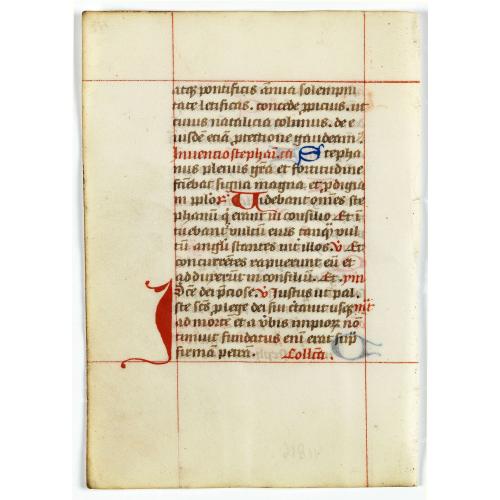 atq; pontificis ānua solempni
tate letificas. concede ꝓpicius. ut
cuius natalicia colimus. de e
iusdē eciā ꝓtectione gaudeam9
Inuencio stephani. Stepha
nus plenus grā et fortitudine
faciebat signa magna et ꝓdigia
in pplo. Uidebant om̄es ste
phanū q̇ erant in consilio Et ī
uebant vultū eius tanq̄ vul
tū angli stantes int̄ illos. v̇ Et
concurrentes rapuerunt eū et
adduxerūt in consiliū. Et
dēe dei p̄ciose. v̇ Iustus ut pal.
Iste scs̄ p lege dei sui c̄tauit usq;
ad mortē et a v̄bis impioꝝ nō
timuit fundatus eni erat sup̄
firmam petrā. Collcā.